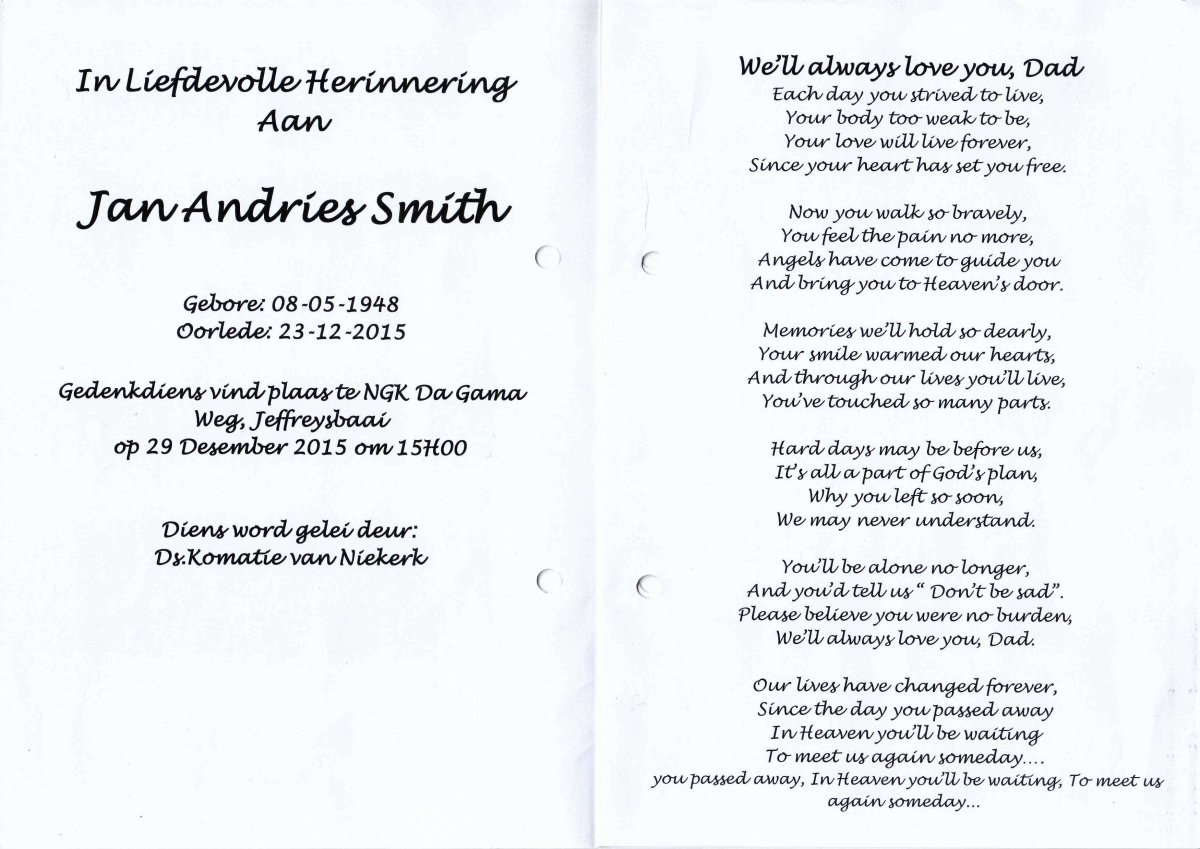 In Liefdevolle Herinnering
Aan
Jan Andries Smith
Gebore: 08-05-1948
Oorlede: 23-12-2015
Gedenkdiens vind plaas te NGK Da Gama
Weg, Jeffreysbaai
op 29 Desember 2015 om 15H00
Diens word gelei deur:
Ds.Komatie van Niekerk
We'll always love you, Dad
Each day you strived to live,
Your body too weak to be,
Your love will live forever,
Since your heart has set you free.
Now you walk so bravely,
You feel the pain no more,
Angels have come to guide you
And bring you to Heaven's door.
Memories we'll hold so dearly,
Your smile warmed our hearts,
And through our lives you'll live,
You've touched so many parts.
Hard days may be before us,
It's all a part of God's plan,
Why you left so soon,
We may never understand.
You'll be alone no longer,
And you'd tell us “ Don't be sad”.
Please believe you were no burden,
We'll always love you, Dad.
Our lives have changed forever,
Since the day you passed away
In Heaven you'll be waiting
To meet us again someday....
you passed away, In Heaven you'll be waiting, To meet us
again someday...